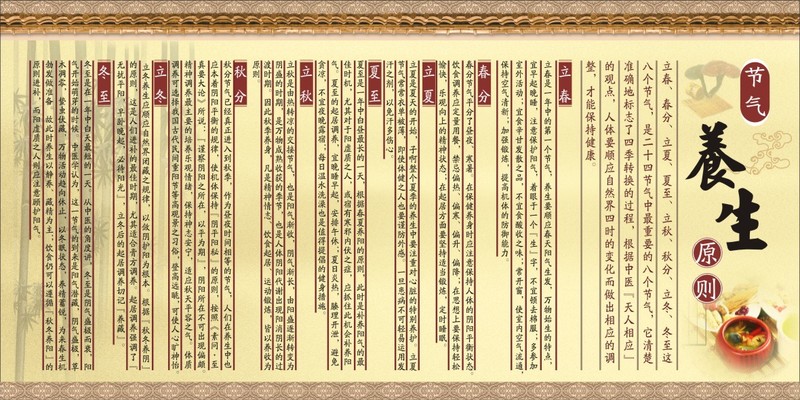 节气
養生
原则
立春、春分、立夏、夏至、立秋、秋分、立冬、冬至这
八个节气，是二十四节气中最重要的八个节气，它清楚
准确地标志了四季转换的过程，根据中医『天人相应』
的观点，人体要顺应自然界四时的变化而做出相应的调
整，才能保持健康。
立春
立春是一年中的第一个节气，养生要顺应春天阳气生发，万物始生的特点，
宜早起晚睡，注意保护阳气，着眼于一个『生』字，不宜顿去棉服；多参加
室外活动；宜食辛甘发散之品，不宜食酸收之味；常开窗，使室内空气流通，
保持空气清新；加强锻炼，提高机体的防御能力。
春分
春分节气平分了昼夜、寒暑，在保健养身时应注意保持人体的阴阳平衡状态。
饮食调养应定量用餐，禁忌偏热、偏寒、偏升、偏降；在思想上要保持轻松
愉快，乐观向上的精神状态；在起居方面要坚持适当锻炼、定时睡眠。
立夏
立夏是夏天的开始，于啊整个夏季的养生中要注重对心脏的特别养护。立夏
节气常常衣单被薄，即使体健之人也要谨防外感，一旦患病不可轻易运用发
汗之剂，以免汗多伤心。
夏至
夏至是一年中白昼最长的一天，根据春夏养阳的原则，此时是补养阳气的最
佳时机，尤其对于阳虚质之人，或宿有寒邪内伏之症，应抓住此机会补养阳
气。夏至的起居调养，宜晚睡早起，安排午休；夏日炎热，腠理开泄，避免
贪凉，不宜夜晚露宿；每日温水洗澡也是值得提倡的健身措施。
立秋
立秋是由热转凉的交接节气，也是阳气渐收、阴气渐长，由阳盛逐渐转变为
阴盛的时期，是万物成熟收获的季节，也是人体阴阳代谢出现阳消阴长的过
渡时期。因此秋季养身，凡是精神情志、饮食起居、运动锻炼，皆以养收为
原则
秋分
秋分节气已经真正进入到秋季，作为昼夜时间相等的节气，人们在养生中也
应本着阴阳平衡的规律，使机体保持『阴平阳秘』的原则，按照《素问·至
真要大论》所说：『谨察阴阳之所在，以平为期』，阴阳所在不可出现偏颇。
精神调养最主要的是培养乐观情绪，保持神志安宁，适应秋天平容之气。体质
调养可选择我国古代民间重阳节等高观景之习俗，登高远眺，可使人心旷神怡
立冬
立冬养生应顺应自然界闭藏之规律，以做阴护阳为根本，根据『秋冬养阴』
的原则，这是人们进补的最佳时期，尤其适合膏方调养。起居调养强调了『
无扰乎阳，早卧晚起，必待阳光』。立冬后的起居调养切记『养藏』。
冬至
冬至是在一年中白天最短的一天。从中医的角度讲，冬至是阴气盛极而衰，阳
气开始萌芽的时候，中医学认为，这一节气的到来是阳气潜藏，阴气盛极，草
木凋零，蛰虫伏藏，万物活动趋向休止，以冬眠状态，养精蓄锐，为来春生机
勃发做准备，故此时养生以静养，藏精为主，饮食仍可以遵循『秋冬养阳』的
原则进补，而阳虚质之人则应注意顾护阳气。